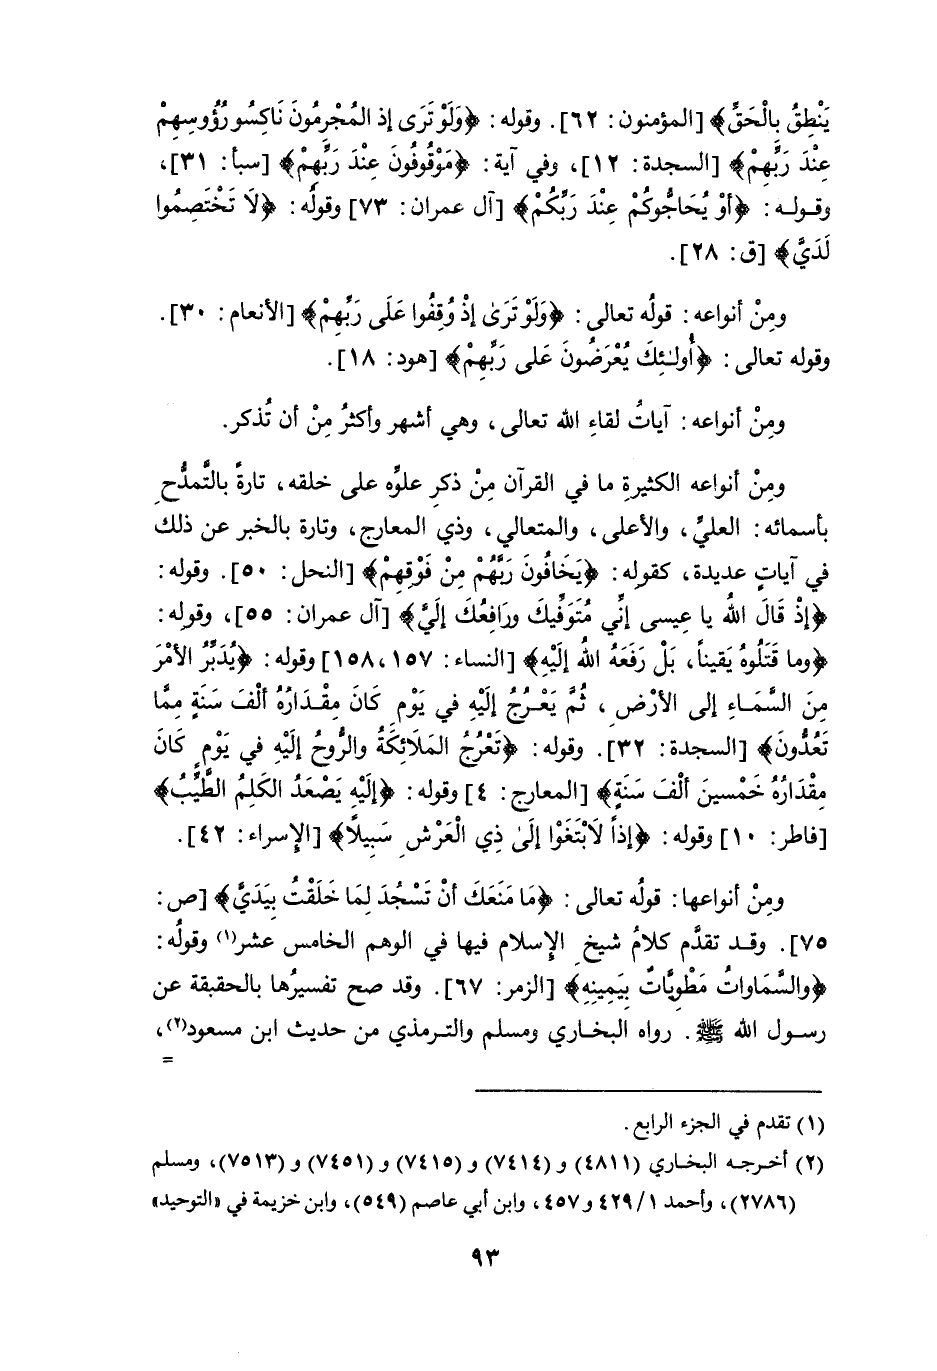 يَنْطِقُ بِالْحَقِّ﴾ [المؤمنون: ٦٢]. وقوله: ﴿وَلَوْ تَرَى إذ المُجْرِمُونَ نَاكِسُو رُؤُوسِهِمْ
عِنْدَ رَبِّهِمْ﴾ [السجدة: ١٢]، وفي آية: ﴿مَوْقُوفُونَ عِنْدَ رَبِّهِمْ﴾ [سبأ: ٣١]،
وقوله: ﴿أوْ يُحَاجُّوكُمْ عِنْدَ رَبِّكُمْ﴾ [آل عمران: ٧٣] وقولُه: ﴿لَا تَخْتَصِمُوا
لَدَيَّ﴾ [ق: ٢٨].
ومِنْ أنواعه: قولُه تعالى: ﴿وَلَوْ تَرَىٰ إذْ وُقِفُوا عَلَى رَبِّهِمْ﴾ [الأنعام: ٣٠].
وقوله تعالى: ﴿أُولٰئِكَ يُعْرَضُونَ عَلى رَبِّهِمْ﴾ [هود: ١٨].
ومِنْ أنواعه: آياتُ لقاءِ الله تعالى، وهي أشهر وأكثرُ مِنْ أن تُذكر.
ومِنْ أنواعه الكثيرةِ ما في القرآن مِنْ ذكرِ علوِّه على خلقه، تارةً بالتَّمدُّحِ
بأسمائه: العليِّ، والأعلى، والمتعالي، وذي المعارج، وتارة بالخبر عن ذلك
في آياتٍ عديدة، كقولِه: ﴿يَخَافُونَ رَبَّهُمْ مِنْ فَوْقِهِمْ﴾ [النحل: ٥٠]. وقوله:
﴿إذْ قَالَ اللهُ يا عِيسى إنِّي مُتَوَفِّيكَ ورَافِعُكَ إلَيَّ﴾ [آل عمران: ٥٥]، وقولِه:
﴿وما قَتَلُوهُ يَقيناً، بَلْ رَفَعَهُ اللهُ إلَيْهِ﴾ [النساء: ١٥٧، ١٥٨] وقوله: ﴿يُدَبِّرُ الأمْرَ
مِنَ السَّمَاءِ إلى الأرْضِ، ثُمَّ يَعْرُجُ إلَيْهِ في يَوْمٍ كَانَ مِقْدَارُهُ ألْفَ سَنَةٍ مِمَّا
تَعُدُّونَ﴾ [السجدة: ٣٢]. وقوله: ﴿تَعْرُجُ المَلَائِكَةُ والرُّوحُ إلَيْهِ في يَوْمٍ كَانَ
مِقْدَارُهُ خَمْسينَ ألْفَ سَنَةٍ﴾ [المعارج: ٤] وقوله: ﴿إلَيْهِ يَصْعَدُ الكَلِمُ الطَّيِّبُ﴾
[فاطر: ١٠] وقوله: ﴿إذاً لَابْتَغَوْا إلَىٰ ذِي الْعَرْشِ سَبيلاً﴾ [الإسراء: ٤٢].
ومِنْ أنواعها: قولُه تعالى: ﴿مَا مَنَعَكَ أنْ تَسْجُدَ لِمَا خَلَقْتُ بِيَدَيَّ﴾ [ص:
٧٥]. وقد تقدَّم كلامُ شيخِ الإسلام فيها في الوهم الخامس عشر(١) وقولُه:
﴿والسَّمَاواتُ مَطْوِيَّاتٌ بِيَمِينِهِ﴾ [الزمر: ٦٧]. وقد صح تفسيرُها بالحقبقة عن
رسول الله ﷺ. رواه البخاري ومسلم والترمذي من حديث ابن مسعود(٢)،
=
(١) تقدم في الجزء الرابع.
(٢) أخرجه البخاري (٤٨١١) و (٧٤١٤) و (٧٤١٥) و (٧٤٥١) و (٧٥١٣)، ومسلم
(٢٧٨٦)، وأحمد ١/٤٢٩ و ٤٥٧، وابن أبي عاصم (٥٤٩)، وابن خزيمة في «التوحيد»
٩٣